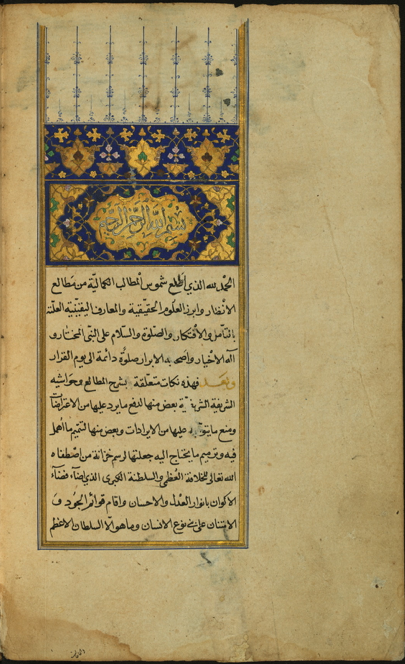 بسم الله الرحمن الرحيم
الحمد لله الذي اطلع شموس المطالب الكمالية من مطالع
الانظار وابرز العلوم الحقيقية والمعارف اليقينية
بالتأمل والافتكار والصلوة والسلام على النبي المختار و
آله الاخيار وصحبه الابرار صلوة دائمة الى يوم القرار
وبعد فهذه نكات متعلقة بشرح المطالع وحواشيه
الشريفة الشريفية بعض منها لدفع ما يرد عليها من الاعتراضات
ومنع ما يتوجه عليها من الايرادات وبعض منها لتتميم ما اهمل
فيه وترميم ما يحتاج اليه جعلتها لرسم خزانة من اصطفاه
الله تعالى للخلافة العظمى والسلطنة الكبرى الذي اضاء فضاء
الاكوان بانوار العدل والاحسان واقام قوائم الجود و
الامتنان على بني نوع الانسان وما هو الا السلطان الاعظم